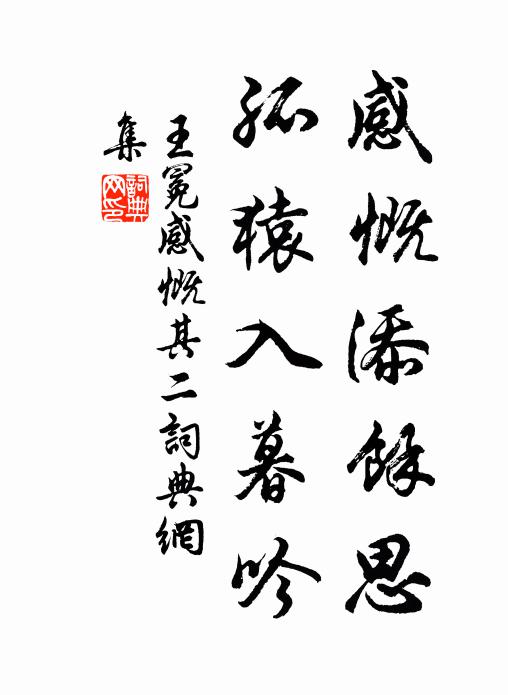 感慨添餘思
孤猿入暮吟
王冕感慨其二詞典網
集
詞典
网印